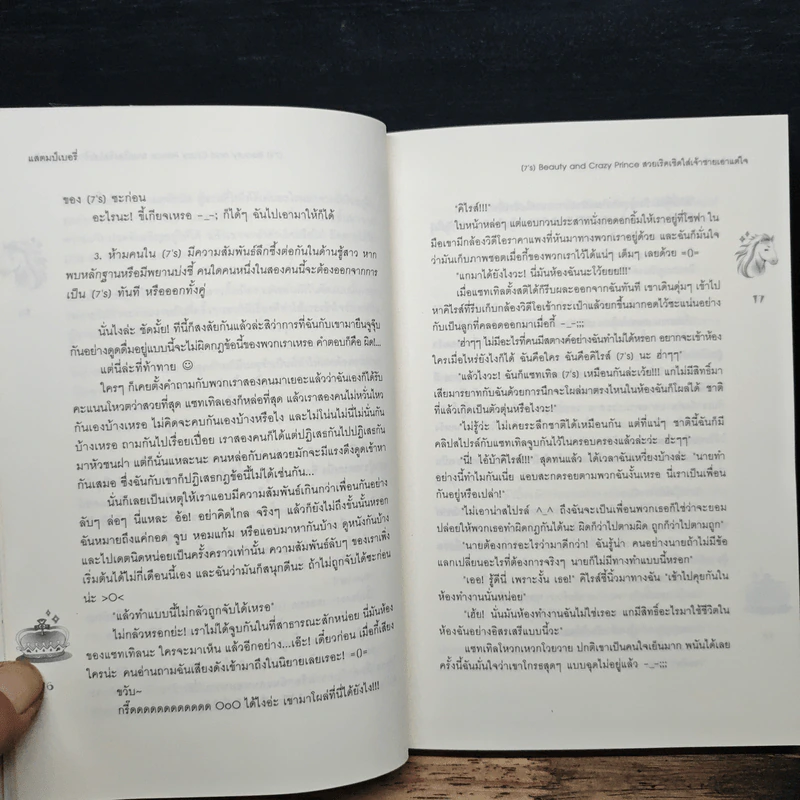 แสตมป์เบอรี่
ของ (7's) ซะก่อน
อะไรนะ! ขี้เกียจเหรอ -_-; ก็ได้ๆ ฉันไปเอามาให้ก็ได้
3. ห้ามคนใน (7's) มีความสัมพันธ์ลึกซึ้งต่อกันในด้านชู้สาว หาก
พบหลักฐานหรือมีพยานบ่งชี้ คนใดคนหนึ่งในสองคนนี้จะต้องออกจากการ
เป็น (7's) ทันที หรือออกทั้งคู่
นั่นไงล่ะ ชัดมั้ย! ทีนี้ก็สงสัยกันแล้วล่ะสิว่าการที่ฉันกับเขามายืนจูจุ๊บ
กันอย่างดูดดื่มอยู่แบบนี้จะไม่ผิดกฎข้อนี้ของพวกเราเหรอ คำตอบก็คือ ผิด!...
แต่นี่ล่ะที่ท้าทาย ☺
ใครๆ ก็เคยตั้งคำถามกับพวกเราสองคนมาเยอะแล้วว่าฉันเองก็ได้รับ
คะแนนโหวตว่าสวยที่สุด แซทเทิลเองก็หล่อที่สุด แล้วเราสองคนไม่หวั่นไหว
กันเองบ้างเหรอ ไม่คิดจะคบกันเองบ้างหรือไง และไม่โน่นไม่นี่ไม่นั่นกัน
บ้างเหรอ ถามกันไปเรื่อยเปื่อย เราสองคนก็ได้แต่ปฏิเสธกันไปปฏิเสธกัน
มาหัวชนฝา แต่ก็นั่นแหละนะ คนหล่อกับคนสวยมักจะมีแรงดึงดูดเข้าหา
กันเสมอ ซึ่งฉันกับเขาก็ปฏิเสธกฎข้อนี้ไม่ได้เช่นกัน...
นั่นก็เลยเป็นเหตุให้เราแอบมีความสัมพันธ์เกินกว่าเพื่อนกันอย่าง
ลับๆ ล่อๆ นี่แหละ อ้อ! อย่าคิดไกล จริงๆ แล้วก็ยังไม่ถึงขั้นนั้นหรอก
ฉันหมายถึงแค่กอด จูบ หอมแก้ม หรือแอบมาหากันบ้าง ดูหนังกันบ้าง
และไปเดตนิดหน่อยเป็นครั้งคราวเท่านั้น ความสัมพันธ์ลับๆ ของเราเพิ่ง
เริ่มต้นได้ไม่กี่เดือนนี้เอง และฉันว่ามันก็สนุกดีนะ ถ้าไม่ถูกจับได้ซะก่อน
น่ะ >O<
"แล้วทำแบบนี้ไม่กลัวถูกจับได้เหรอ"
ไม่กลัวหรอกย่ะ! เราไม่ได้จูบกันในที่สาธารณะสักหน่อย นี่มันห้อง
ของแซทเทิลนะ ใครจะมาเห็น แล้วอีกอย่าง...เอ๊ะ! เดี๋ยวก่อน เมื่อกี้เสียง
ใครน่ะ คนอ่านถามฉันเสียงดังเข้ามาถึงในนิยายเลยเรอะ! =()=
ขวับ~
กรี๊ดดดดดดดดดดดด OoO ได้ไงอ่ะ เขามาโผล่ที่นี่ได้ยังไง!!!
6
(7's) Beauty and Crazy Prince สวยเริ่ดเชิดใส่เจ้าชายเอาแต่ใจ
"คิไรส์!!!"
ใบหน้าหล่อๆ แต่แอบกวนประสาทนั่งกอดอกยิ้มให้เราอยู่ที่โซฟา ใน
มือเขามีกล้องวิดีโอราคาแพงที่หันมาทางพวกเราอยู่ด้วย และฉันก็มั่นใจ
ว่ามันเก็บภาพชอตเมื่อกี้ของพวกเราไว้ได้แน่ๆ เต็มๆ เลยด้วย =()=
"แกมาได้ยังไงวะ! นี่มันห้องฉันนะโว้ยยย!!!"
เมื่อแซทเทิลตั้งสติได้ก็รีบผละออกจากฉันทันที เขาเดินดุ่มๆ เข้าไป
หาคิไรส์ที่รีบเก็บกล้องวิดีโอเข้ากระเป๋าแล้วยกขึ้นมากอดไว้ซะแน่นอย่าง
กับเป็นลูกที่คลอดออกมาเมื่อกี้ -_-;;;
"ฮ่าๆๆ ไม่มีอะไรที่คนมีสตางค์อย่างฉันทำไม่ได้หรอก อยากจะเข้าห้อง
ใครเมื่อไหร่ยังไงก็ได้ ฉันคือใคร ฉันคือคิไรส์ (7's) นะ ฮ่าๆๆ"
"แล้วไงวะ! ฉันก็แซทเทิล (7's) เหมือนกันล่ะเว้ย!!! แกไม่มีสิทธิ์มา
เสียมารยาทกับฉันด้วยการนึกจะโผล่มาตรงไหนในห้องฉันก็โผล่ได้ ชาติ
ที่แล้วเกิดเป็นตัวตุ่นหรือไงวะ!"
"ไม่รู้ว่ะ ไม่เคยระลึกชาติได้เหมือนกัน แต่ที่แน่ๆ ชาตินี้ฉันก็มี
คลิปสไปรส์กับแซทเทิลจูบกันไว้ในครอบครองแล้วล่ะว่ะ ฮ่ะๆๆ"
"นี่! ไอ้บ้าคิไรส์!" สุดทนแล้ว ได้เวลาฉันเหวี่ยงบ้างล่ะ "นายทำ
อย่างนี้ทำไมกันเนี่ย แอบสะกดรอยตามพวกฉันงั้นเหรอ นี่เราเป็นเพื่อน
กันอยู่หรือเปล่า!"
"ไม่เอาน่าสไปรส์ ^_^ ถึงฉันจะเป็นเพื่อนพวกเธอก็ใช่ว่าจะยอม
ปล่อยให้พวกเธอทำผิดกฎกันได้นะ ผิดก็ว่าไปตามผิด ถูกก็ว่าไปตามถูก"
"นายต้องการอะไรว่ามาดีกว่า! ฉันรู้น่า คนอย่างนายถ้าไม่มีข้อ
แลกเปลี่ยนอะไรที่ต้องการจริงๆ นายก็ไม่มีทางทำแบบนี้หรอก"
"เออ! รู้ดีนี่ เพราะงั้น เธอ!" คิไรส์ชี้นิ้วมาทางฉัน "เข้าไปคุยกันใน
ห้องทำงานนั่นหน่อย"
"เฮ้ย! นั่นมันห้องทำงานฉันไม่ใช่เรอะ แกมีสิทธิ์อะไรมาใช้ชีวิตใน
ห้องฉันอย่างอิสรเสรีแบบนี้วะ"
แซทเทิลโหวกเหวกโวยวาย ปกติเขาเป็นคนใจเย็นมาก พนันได้เลย
ครั้งนี้ฉันมั่นใจว่าเขาโกรธสุดๆ แบบฉุดไม่อยู่แล้ว -_-;;;
17